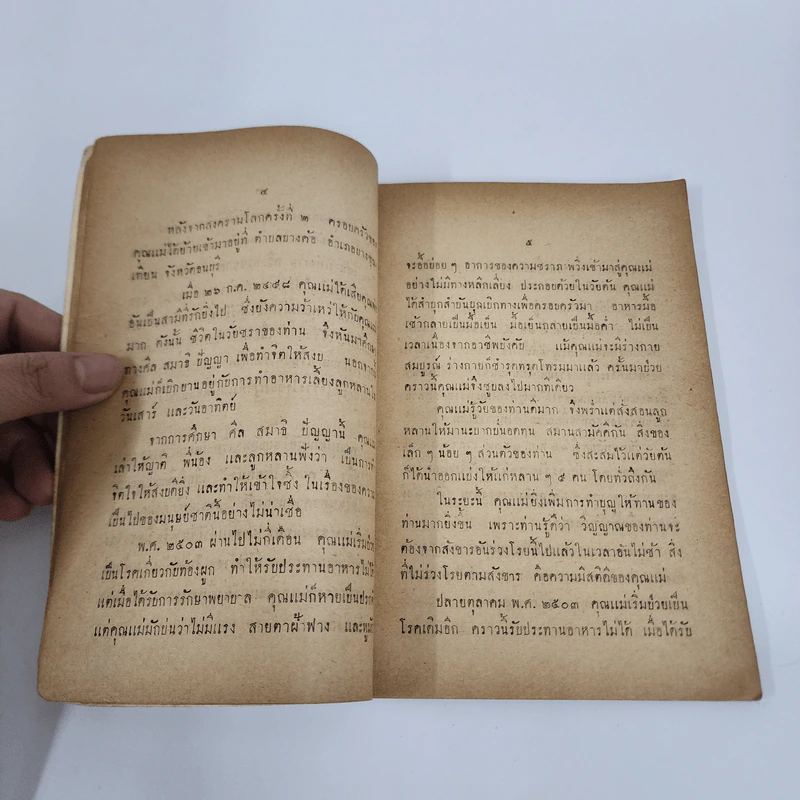 ๔
หลังจากสงครามโลกครั้งที่ ๒ ครอบครัวของ
คุณแม่ได้ย้ายเข้ามาอยู่ที่ ตำบลยางค้อ อำเภอบางขุน
เทียน จังหวัดธนบุรี
เมื่อ ๒๖ ก.ค. ๒๔๙๘ คุณแม่ได้เสีย
อันเป็นสามีที่รักยิ่งไป ซึ่งยังความว้าเหว่ให้กับคุณแม่
มาก ดังนั้น ชีวิตในวัยชราของท่าน จึงหันมา
ทางศีล สมาธิ ปัญญา เพื่อทำจิตให้สงบ นอกจาก
คุณแม่ก็เบิกบานอยู่กับการทำอาหารเลี้ยงลูกหลานใน
วันเสาร์ และวันอาทิตย์
จากการศึกษา ศีล สมาธิ ปัญญานี้ คุณแม่
เล่าให้ญาติ พี่น้อง และลูกหลานฟังว่า เป็นการทำ
จิตใจให้สงบดียิ่ง และทำให้เข้าใจซึ้ง ในเรื่องของความ
เป็นไปของมนุษย์ชาตินี้อย่างไม่น่าเชื่อ
พ.ศ. ๒๕๐๓ ผ่านไปไม่กี่เดือน คุณแม่เริ่มป่วย
เป็นโรคเกี่ยวกับท้องผูก ทำให้รับประทานอาหารไม่ได้
แต่เมื่อได้รับการรักษาพยาบาล คุณแม่ก็หายเป็นปรกติ
แต่คุณแม่มักบ่นว่าไม่มีแรง สายตาฝ้าฟาง และหู
๕
จะอื้อบ่อย ๆ อาการของความชราภาพวิ่งเข้ามาสู่คุณแม่
อย่างไม่มีทางหลีกเลี่ยง ประกอบด้วยในวัยต้น คุณแม่
ได้ลำบุกลำบันบุกเบิกทางเพื่อครอบครัวมา อาหารมื้อ
เช้ากลายเป็นมื้อเย็น มื้อเย็นกลายเป็นมื้อค่ำ ไม่เป็น
เวลาเนื่องจากอาชีพบังคับ แม้คุณแม่จะมีร่างกาย
สมบูรณ์ ร่างกายก็ชำรุดทรุดโทรมมาแล้ว ครั้นมาป่วย
คราวนี้คุณแม่จึงซูบลงไปมากทีเดียว
คุณแม่รู้วัยของท่านดีมาก จึงพร่ำแต่สั่งสอนลูก
หลานให้มานะบากบั่นอดทน สมานสามัคคีกัน สิ่งของ
เล็ก ๆ น้อย ๆ ส่วนตัวของท่าน ซึ่งสะสมไว้แต่วัยต้น
ก็ได้นำออกแบ่งให้แก่หลาน ๆ ๕ คน โดยทั่วถึงกัน
ในระยะนี้ คุณแม่ยิ่งเพิ่มการทำบุญให้ทานของ
ท่านมากยิ่งขึ้น เพราะท่านรู้ดีว่า วิญญาณของท่านจะ
ต้องจากสังขารอันร่วงโรยนี้ไปแล้วในเวลาอันไม่ช้า สิ่ง
ที่ไม่ร่วงโรยตามสังขาร คือความมีสติดีของคุณแม่
ปลายตุลาคม พ.ศ. ๒๕๐๓ คุณแม่เริ่มป่วยเป็น
โรคเดิมอีก คราวนี้รับประทานอาหารไม่ได้ เมื่อได้รับ